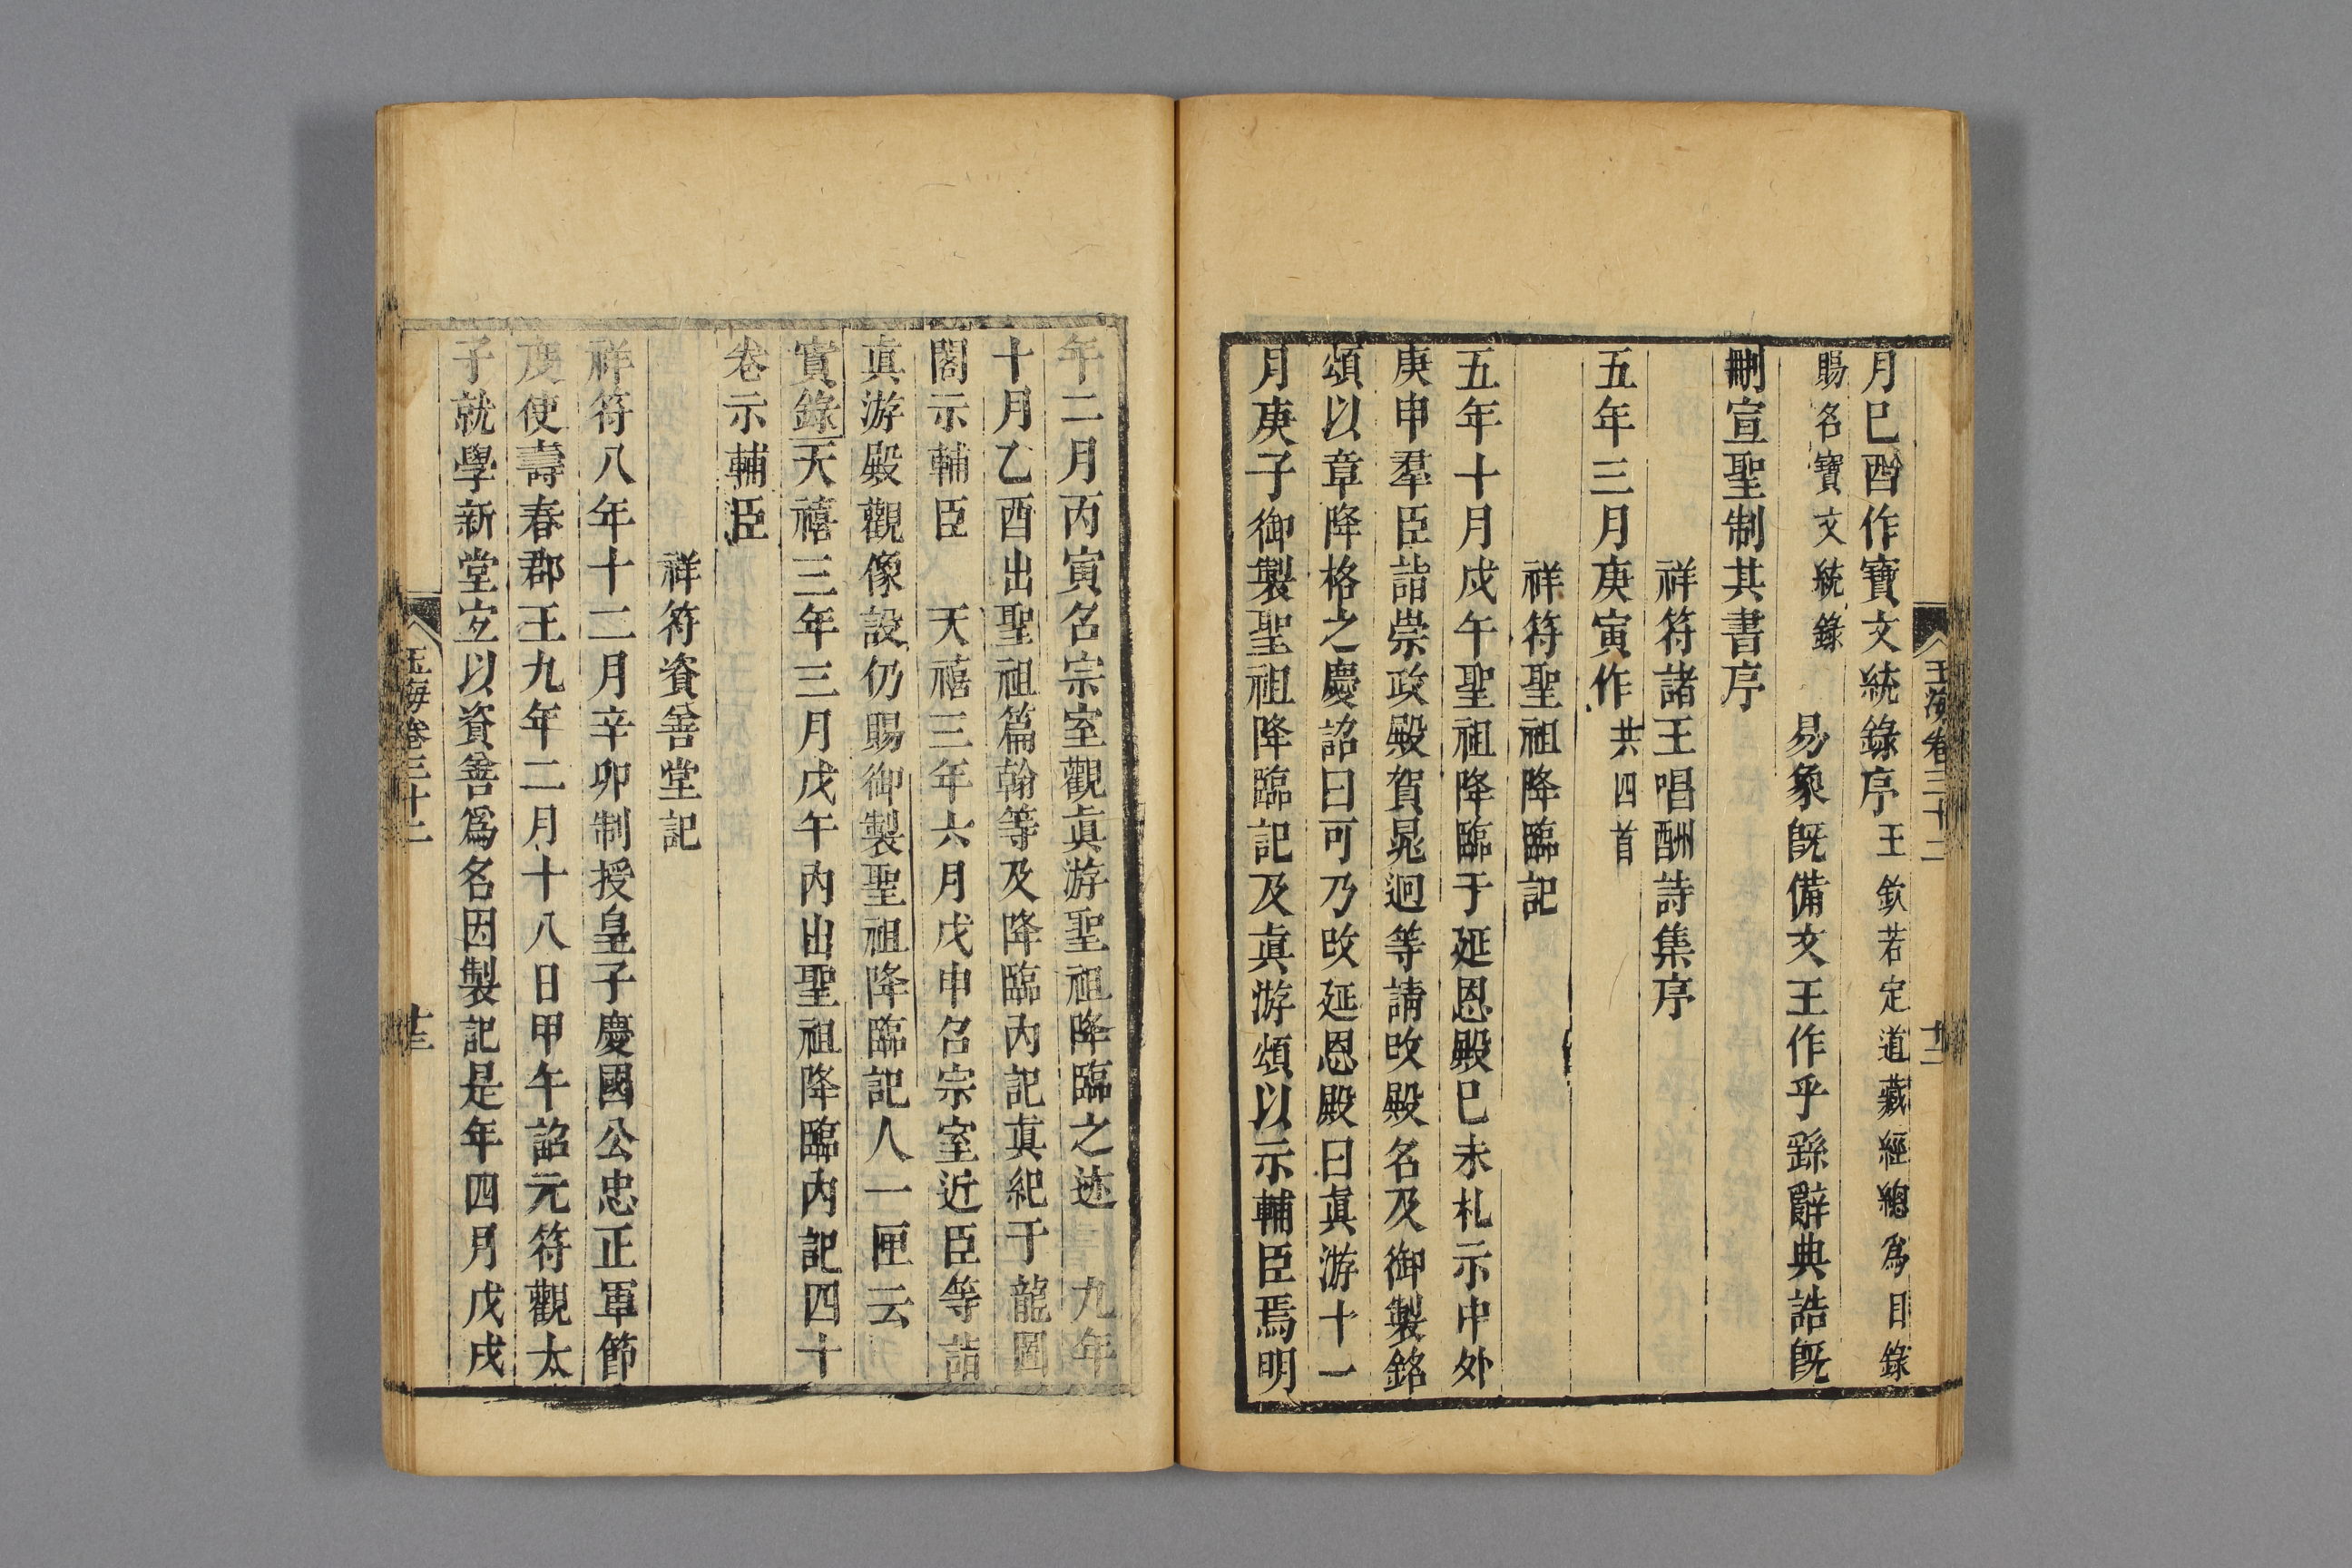 玉海卷三十二
十二
月巳酉作寶文統錄序王欽若定道藏經總爲目錄
賜名寶文統錄 易象旣備文王作乎繇辭典誥旣
刪宣聖制其書序
祥符諸王唱酬詩集序
五年三月庚寅作共四首
祥符聖祖降臨記
五年十月戊午聖祖降臨于延恩殿巳未札示中外
庚申羣臣詣崇政殿賀晁迥等請改殿名及御製銘
頌以章降格之慶詔曰可乃改延恩殿曰眞游十一
月庚子御製聖祖降臨記及眞游頌以示輔臣焉明
年二月丙寅召宗室觀眞游聖祖降臨之迹 九年
十月乙酉出聖祖篇翰等及降臨內記眞紀于龍圖
閣示輔臣 天禧三年六月戊申召宗室近臣等詣
眞游殿觀像設仍賜御製聖祖降臨記人一匣云
實錄天禧三年三月戊午內出聖祖降臨內記四十
卷示輔臣
祥符資善堂記
祥符八年十二月辛卯制授皇子慶國公忠正軍節
度使壽春郡王九年二月十八日甲午詔元符觀太
子就學新堂宜以資善爲名因製記是年四月戊戌
玉海卷三十二
十三